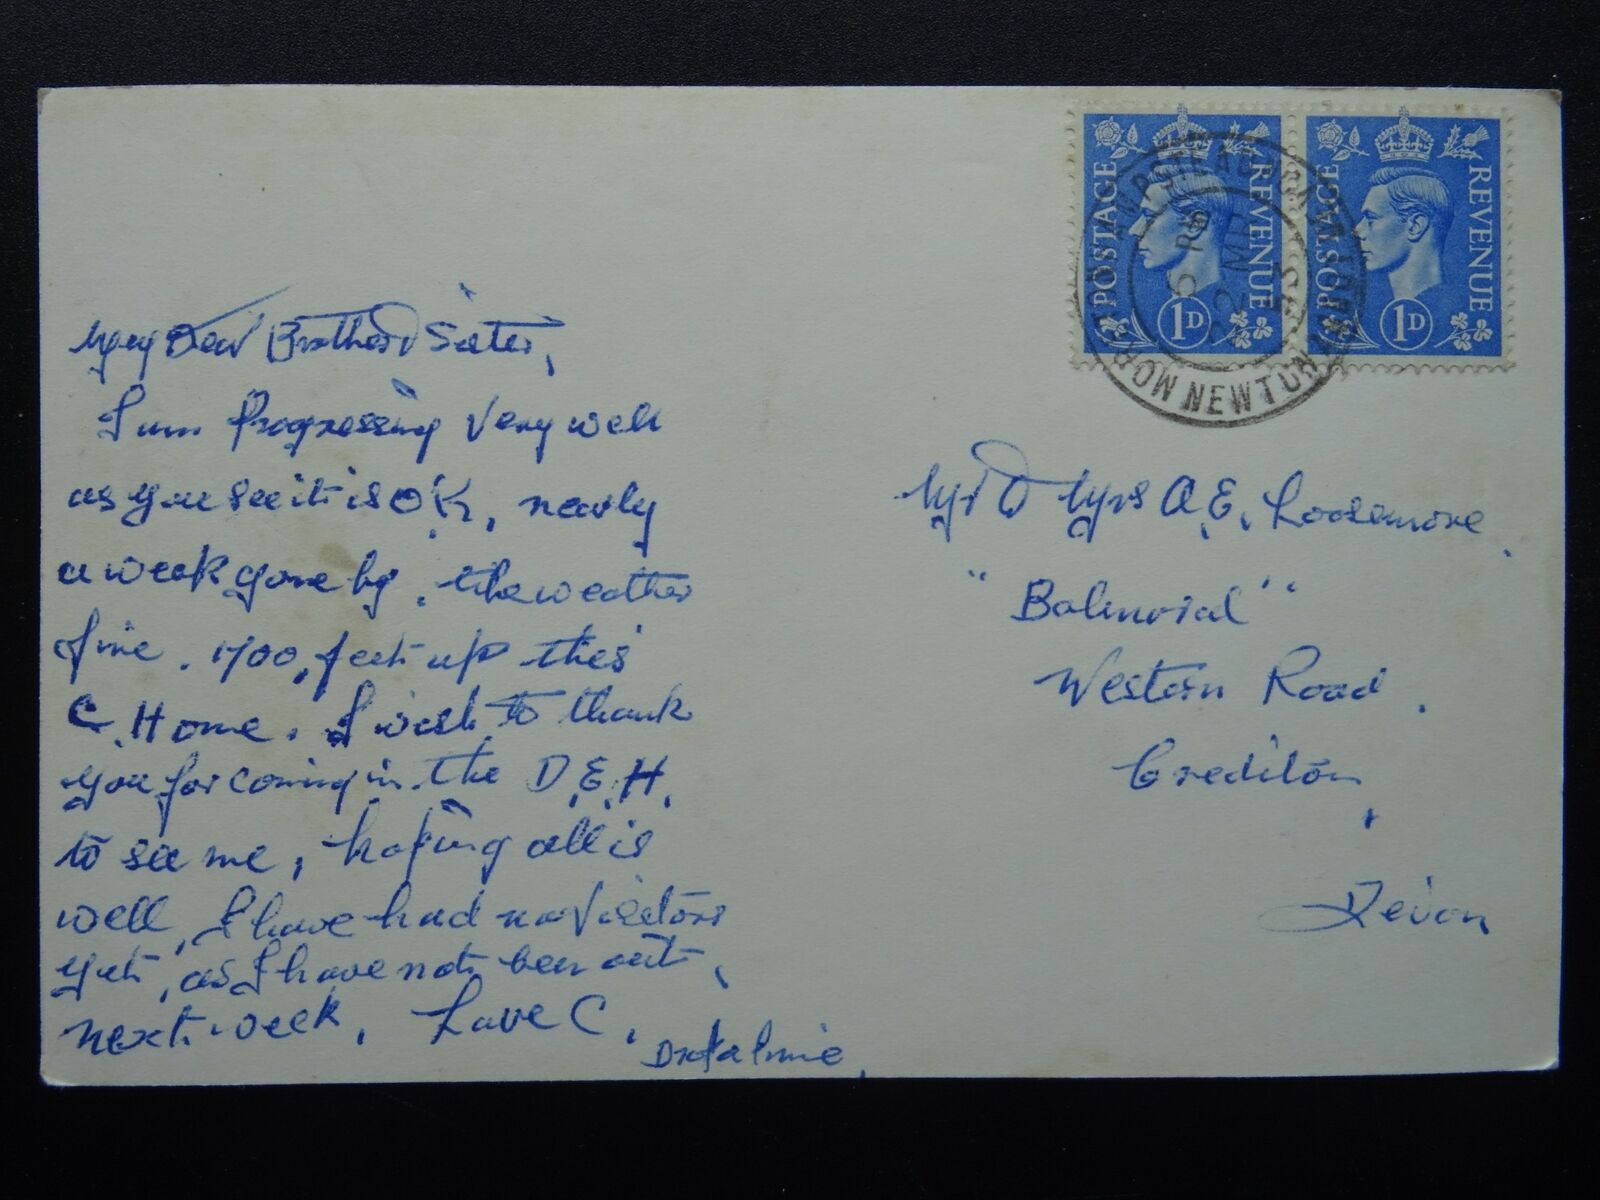 My Dear Brother & Sister,
I am Progressing Very well
as you see it is OK, nearly
a week gone by, the weather
fine. 1700, feet up this
C. Home. I wish to thank
you for coming in the D.E.H.
to see me, hoping all is
well, I have had no Visitors
yet, as I have not been out,
next week. Love C.
POSTAGE REVENUE
1D
POSTAGE REVENUE
1D
MORETON HAMPSTEAD ROAD
NEWTON ABBOT
53
Mr & Mrs A.E. Loosemore
"Balmoral"
Western Road.
Crediton,
Devon